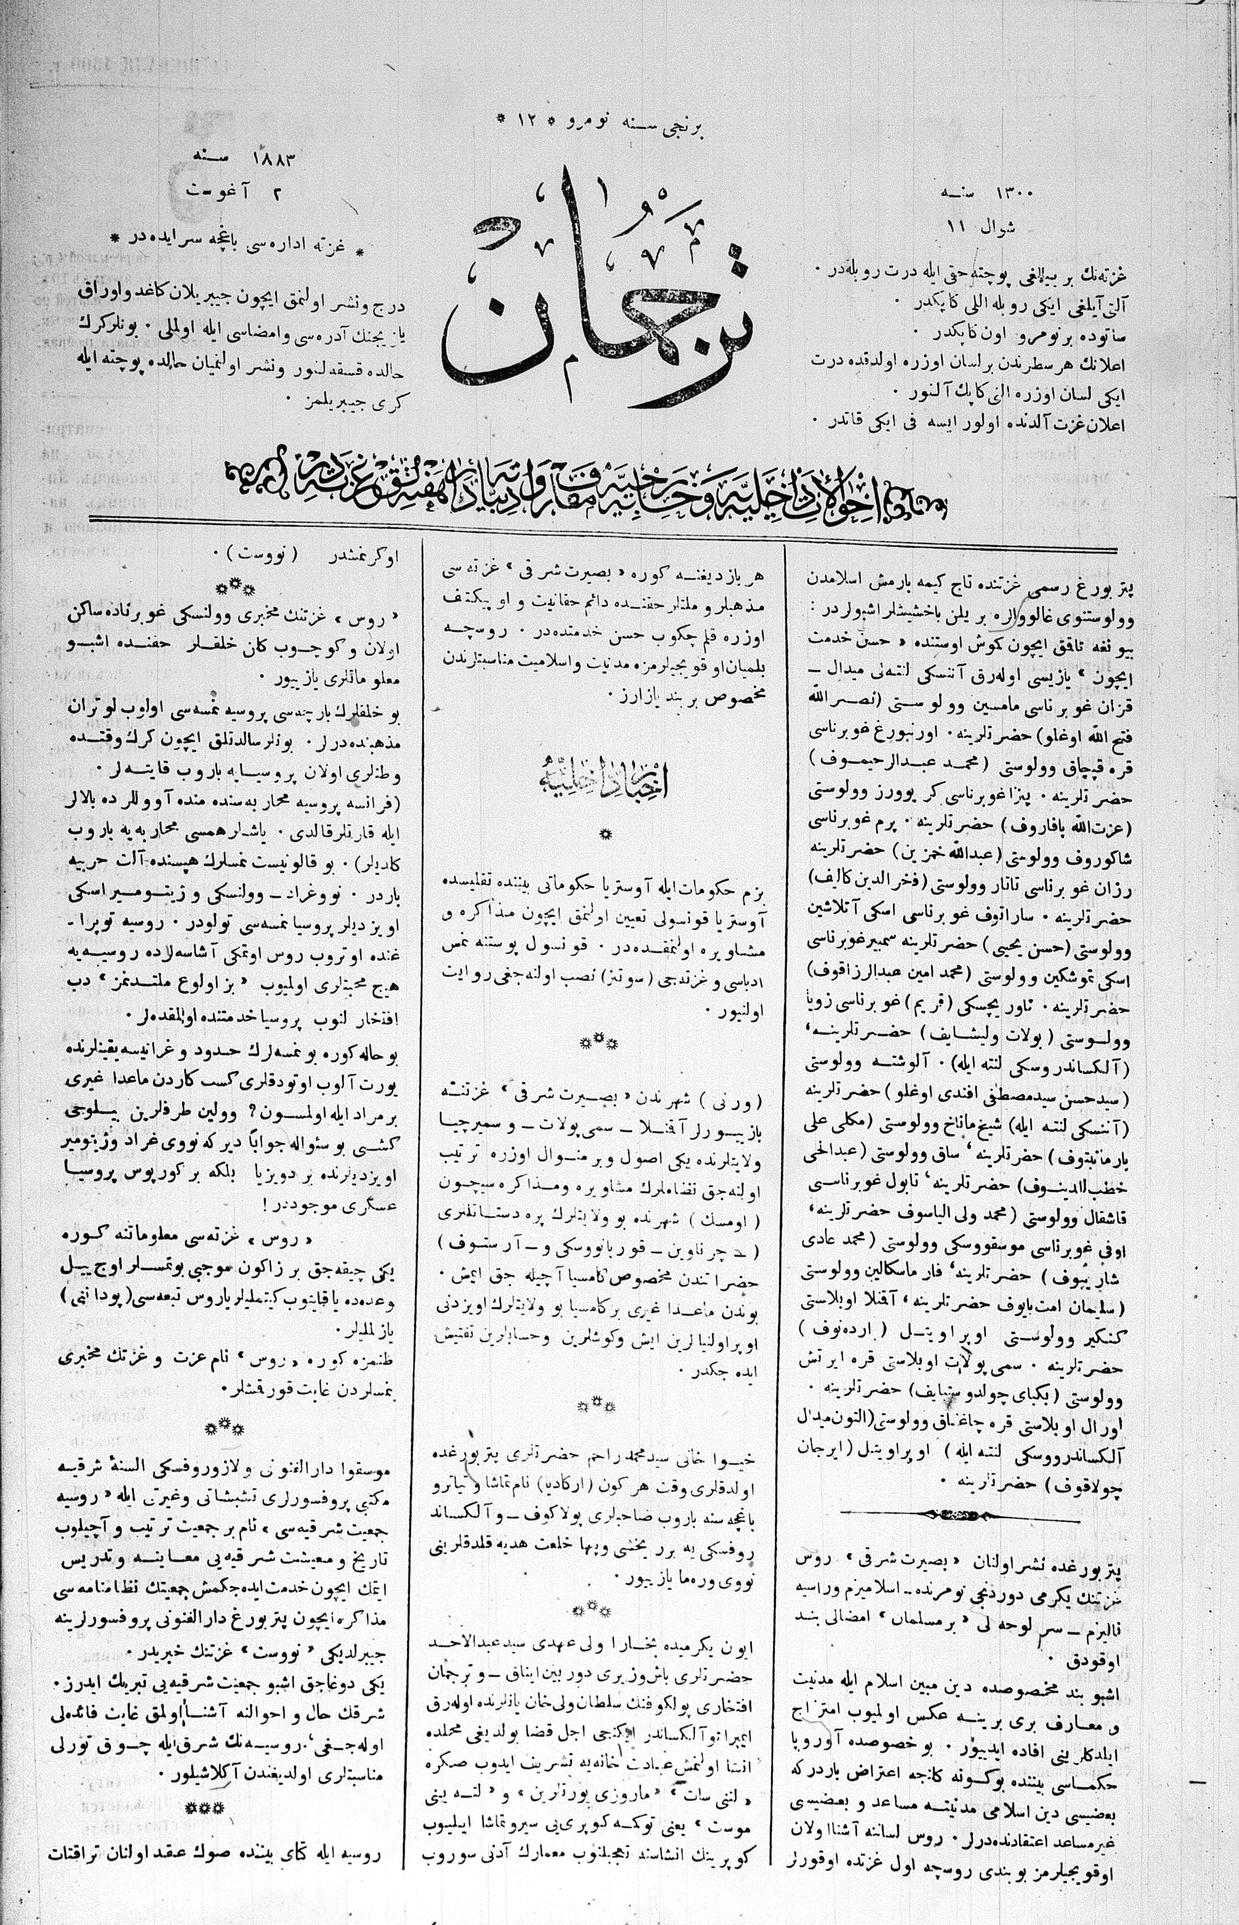 برنجی سنه نومرو * ۱۲ *
۱۳۰۰ سنه
شوال ۱۱
غزتەنك بر ییللغی پوچته حقی ایله درت روبلەدر .
آلتی آیلغی ایکی روبله اللی کاپکدر .
ساتوده بر نومرو اون کاپکدر .
اعلانك هر سطرندن بر لسان اوزره اولدقده درت
ایکی لسان اوزره التی کاپك آلنور .
اعلان غزت آلدنده اولور ایسه فی ایکی قاتدر .
ترجمان
۱۸۸۳ سنه
۲ آغوست
* غزته اداره سی باغچه سرایده در *
درج ونشر اولنمق ایچون جیبریلان کاغد واوراق
یازیجینك آدرەسی وامضاسی ایله اولملی . بونلر کرك
حالده قسقه لنور ونشر اولنمیان حالده پوچته ایله
کری جیبریلمز .
پتربورغ رسمی غزتنده تاج کیمه بارمش اسلامدن
وولوستنوی غالووالره بریلن باخشیشلر اشبولردر :
بیونغه ثاقق ایچون کموش اوستنده « حسن خدمت
ایچون » یازیسی اوله رق آننسکی لنتەلی میدال ـ
قزان غوبرناسی مامسین وولوستی (نصر الله
فتح الله اوغلو) حضرتلرینه. اورنبورغ غوبرناسی
قره قپچاق وولوستی (محمد عبدالرحیموف)
حضرتلرینه . پنزا غوبرناسی کریوورز وولوستی
(عزت الله پافاروف) حضرتلرینه . پرم غوبرناسی
شاکوروف وولوستی (عبدالله خمزین) حضرتلرینه
رزان غوبرناسی تاتار وولوستی (فخر الدین کالیف)
حضرتلرینه . ساراتوف غوبرناسی اسکی آتلاشین
وولوستی (حسن یحیی) حضرتلرینه سمبیر غوبرناسی
اسکی تموشکین وولوستی (محمد امین عبدالرزاقوف)
حضرتلرینه . تاوریچسکی (قریم) غوبرناسی زویا
وولوستی (بولات ولیشایف) حضرتلرینه،
(آلکساندروسکی لنته ایله) . آلوشته وولوستی
(سیدحسن سیدمصطفی افندی اوغلو) حضرتلرینه
(آننسکی لنته ایله) شیخ ماناخ وولوستی (مکلی علی
یارمانیتوف) حضرتلرینه، ساق وولوستی (عبدالحی
خطب الدینوف) حضرتلرینه، تابول غوبرناسی
قاشقال وولوستی (محمد ولی الیاسوف حضرتلرینه،
اوفی غوبرناسی موسقووسکی وولوستی (محمد عادی
شاریپوف) حضرتلرینه، فار ماسکالین وولوستی
(سلیمان امت بایوف حضرتلرینه، آقنلا اوبلاستی
کنکیر وولوستی اوپراویتل (اردەنوف)
حضرتلرینه . سمی پولات اوبلاستی قره ایرتش
وولوستی (بکبای چولدوستبایف) حضرتلرینه .
اورال اوبلاستی قره چاغناق وولوستی (التون میدال
آلکساندرووسکی لنته ایله) اوپراویتل (ایرجان
چولاقوف) حضرتلرینه .
پتربورغده نشر اولنان « بصیرت شرقی » روس
غزتنك یکرمی دوردنجی نومرنده ـ اسلامیزم وراسیه
نالیزم ـ سر لوحه لی « بر مسلمان » امضالی بند
اوقودق .
اشبو بند مخصوصده دین مبین اسلام ایله مدنیت
و معارف بری برینه عکس اولمیوب امتزاج
ایلدکلرینی افاده ایدییور . بو خصوصده آوروپا
حکماسی بیننده بو کونه کانجه اعتراض باردرکه
بعضیسی دین اسلامی مدنیته مساعد و بعضیسی
غیر مساعد اعتقادنده درلر. روس لساننه آشنا اولان
اوقویجیلرمز بو بندی روسچه اول غزتده اوقورلر
هر یازدیغنه کوره « بصیرت شرقی » غزته سی
مذهبلر و ملتلر حقنده دائم حقانیت و اوپیکتف
اوزره قلم چکوب حسن خدمتده در . روسچه
بلمیان اوقویجیلرمزه مدنیت واسلامیت مناسبتلرندن
مخصوص بر بند یازارز .
اخبار داخلیه
بزم حکومات ایله آوستریا حکوماتی بیننده تفلیسده
آوستریا قونسولی تعیین اولنمق ایچون مذاکره و
مشاویره اولنمقده در . قونسول پوستنه نمس
ادباسی و غزتدجی (سوتنز) نصب اولنه جغی روایت
اولنیور .
(ورنی) شهرندن « بصیرت شرقی » غزتنه
یازییورلر آقنلا ـ سمی پولات ـ و سمیرچیا
ولایتلرنده یکی اصول و بر منوال اوزره ترتیب
اولنه جق نظامەلرك مشاویره ومذاکره سیچون
(اومسك) شهرنده بو ولایتلرك پره دستانلقلری
(چرناوین ـ قوربانووسکی و ـ آرستوف)
حضراتندن مخصوص کامسیا آچیله جق ایمش .
بوندن ماعدا غیری بر کامسیا بو ولایتلرك اویزدنی
اوپراولنیالرین ایش وکوشلرین وحسابلرین تفتیش
ایده جکدر .
خیوا خانی سیدمحمد راحم حضرتلری پتربورغده
اولدقلری وقت هر کون (ارکادیا) نام تماشا و تیاترو
باغچه سنه باروب صاحبلری پولاکوف ـ و آلکساند
روفسکی یه برر یخشی وبها خلعت هدیه قلدقلرینی
نووی ورەما یازییور .
ایون یکرمیده بخارا ولی عهدی سیدعبدالاحد
حضرتلری باش وزیری دوربین ایناق ـ و ترجمان
افتخاری پولکوفنك سلطان ولی خان یانلرنده اوله رق
ایمپراتور آلکساندر ایکنجی اجل قضا بولدیغی محلده
انشا اولنمش عبادت خانه یه تشریف ایدوب صکره
« لتنی سات » « ماروزی بورتلرین » و « لتەینی
موست » یعنی توکمه کوپریی سیروتماشا ایلیوب
کوپرینك انشاسنه تعجبلنوب معمارك آدنی سوروب
اوکرنمشدر (نووست) .
« روس » غزتنك مخبری وولنسکی غوبرناده ساکن
اولان و کوچوب کان خلقلر حقنده اشبو
معلوماتلری یازییور .
بو خلقلرك بارچەسی پروسیه نمسەسی اولوب لوتران
مذهبنده درلر . بونلر سالدتلق ایچون کرك وقتده
وطنلری اولان پروسیایه باروب قایتەلر .
(فرانسه پروسیه محاربه سنده منده آووللرده بالالر
ایله قارتلر قالدی . یاشلر همسی محاربه یه باروب
کلدیلر) . بو قالونیست نمسلرك هپسنده آلت حربیه
باردر . نووغراد ـ وولنسکی و زیتومیر اسکی
اویزدیلر پروسیا نمسەسی تولودر . روسیه توپراـ
غنده اوتروب روس اوتمکی آشاسەلرده روسیه یه
هیچ محبتلری اولمیوب « بز اولوغ ملتدنمز » دب
افتخار لنوب پروسیا خدمتنده اولمقدەلر .
بو حاله کوره بو نمسەلرك حدود و غرانیسه یقینلرنده
یورت آلوب اوتودقلری کسب کاردن ماعدا غیری
بر مراد ایله اولمسون؟ وولین طرفلرین بیلوجی
کشی بو سئواله جواباً دیر که نووی غراد وژیتومیر
اویزدیلرنده بر دویزیا بلکه بر کورپوس پروسیا
عسکری موجوددر!
« روس » غزته سی معلوماتنه کوره
یکی چیقه جق بر زاکون موجبی بو نمسلر اوچ ییل
وعده ده یا قایتوب کیتملیلر یا روس تبعەسی (پودانی)
یازلملیلر.
ظنمزه کوره « روس » نام عزت و غزتك مخبری
نمسلردن غایت قورقمشلر .
موسقوا دار الفنونی ولازوروفسکی السنۀ شرقیه
مکتبی پروفسورلری تشبثاتی وغیرتی ایله « روسیه
جمعیت شرقیه سی » نام بر جمعیت ترتیب و آچیلوب
تاریخ و معیشت شرقیه یی معاینه و تدریس
ایتمك ایچون خدمت ایده جکمش جمعیتك نظامنامه سی
مذاکره ایچون پتربورغ دار الفنونی پروفسورلرینه
جیبرلدیکی « نووست » غزتنك خبریدر .
یکی دوغاجق اشبو جمعیت شرقیه یی تبریك ایدرز .
شرقك حال و احوالنه آشنا اولمق غایت فائده لی
اوله جغی، روسیەنك شرق ایله چوق تورلی
مناسبتلری اولدیغندن آکلاشیلور .
روسیه ایله کتای بیننده صوك عقد اولنان تراقتات